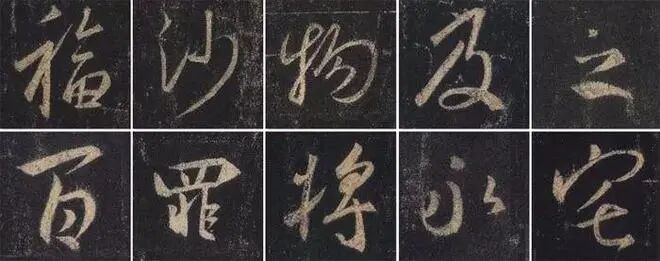 福沙物及之
百罪將永宅